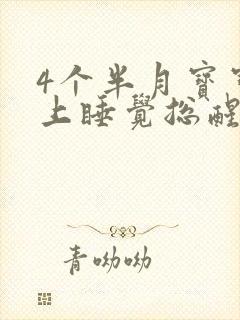 4个半月寶
上睡覺総醒
青呦呦